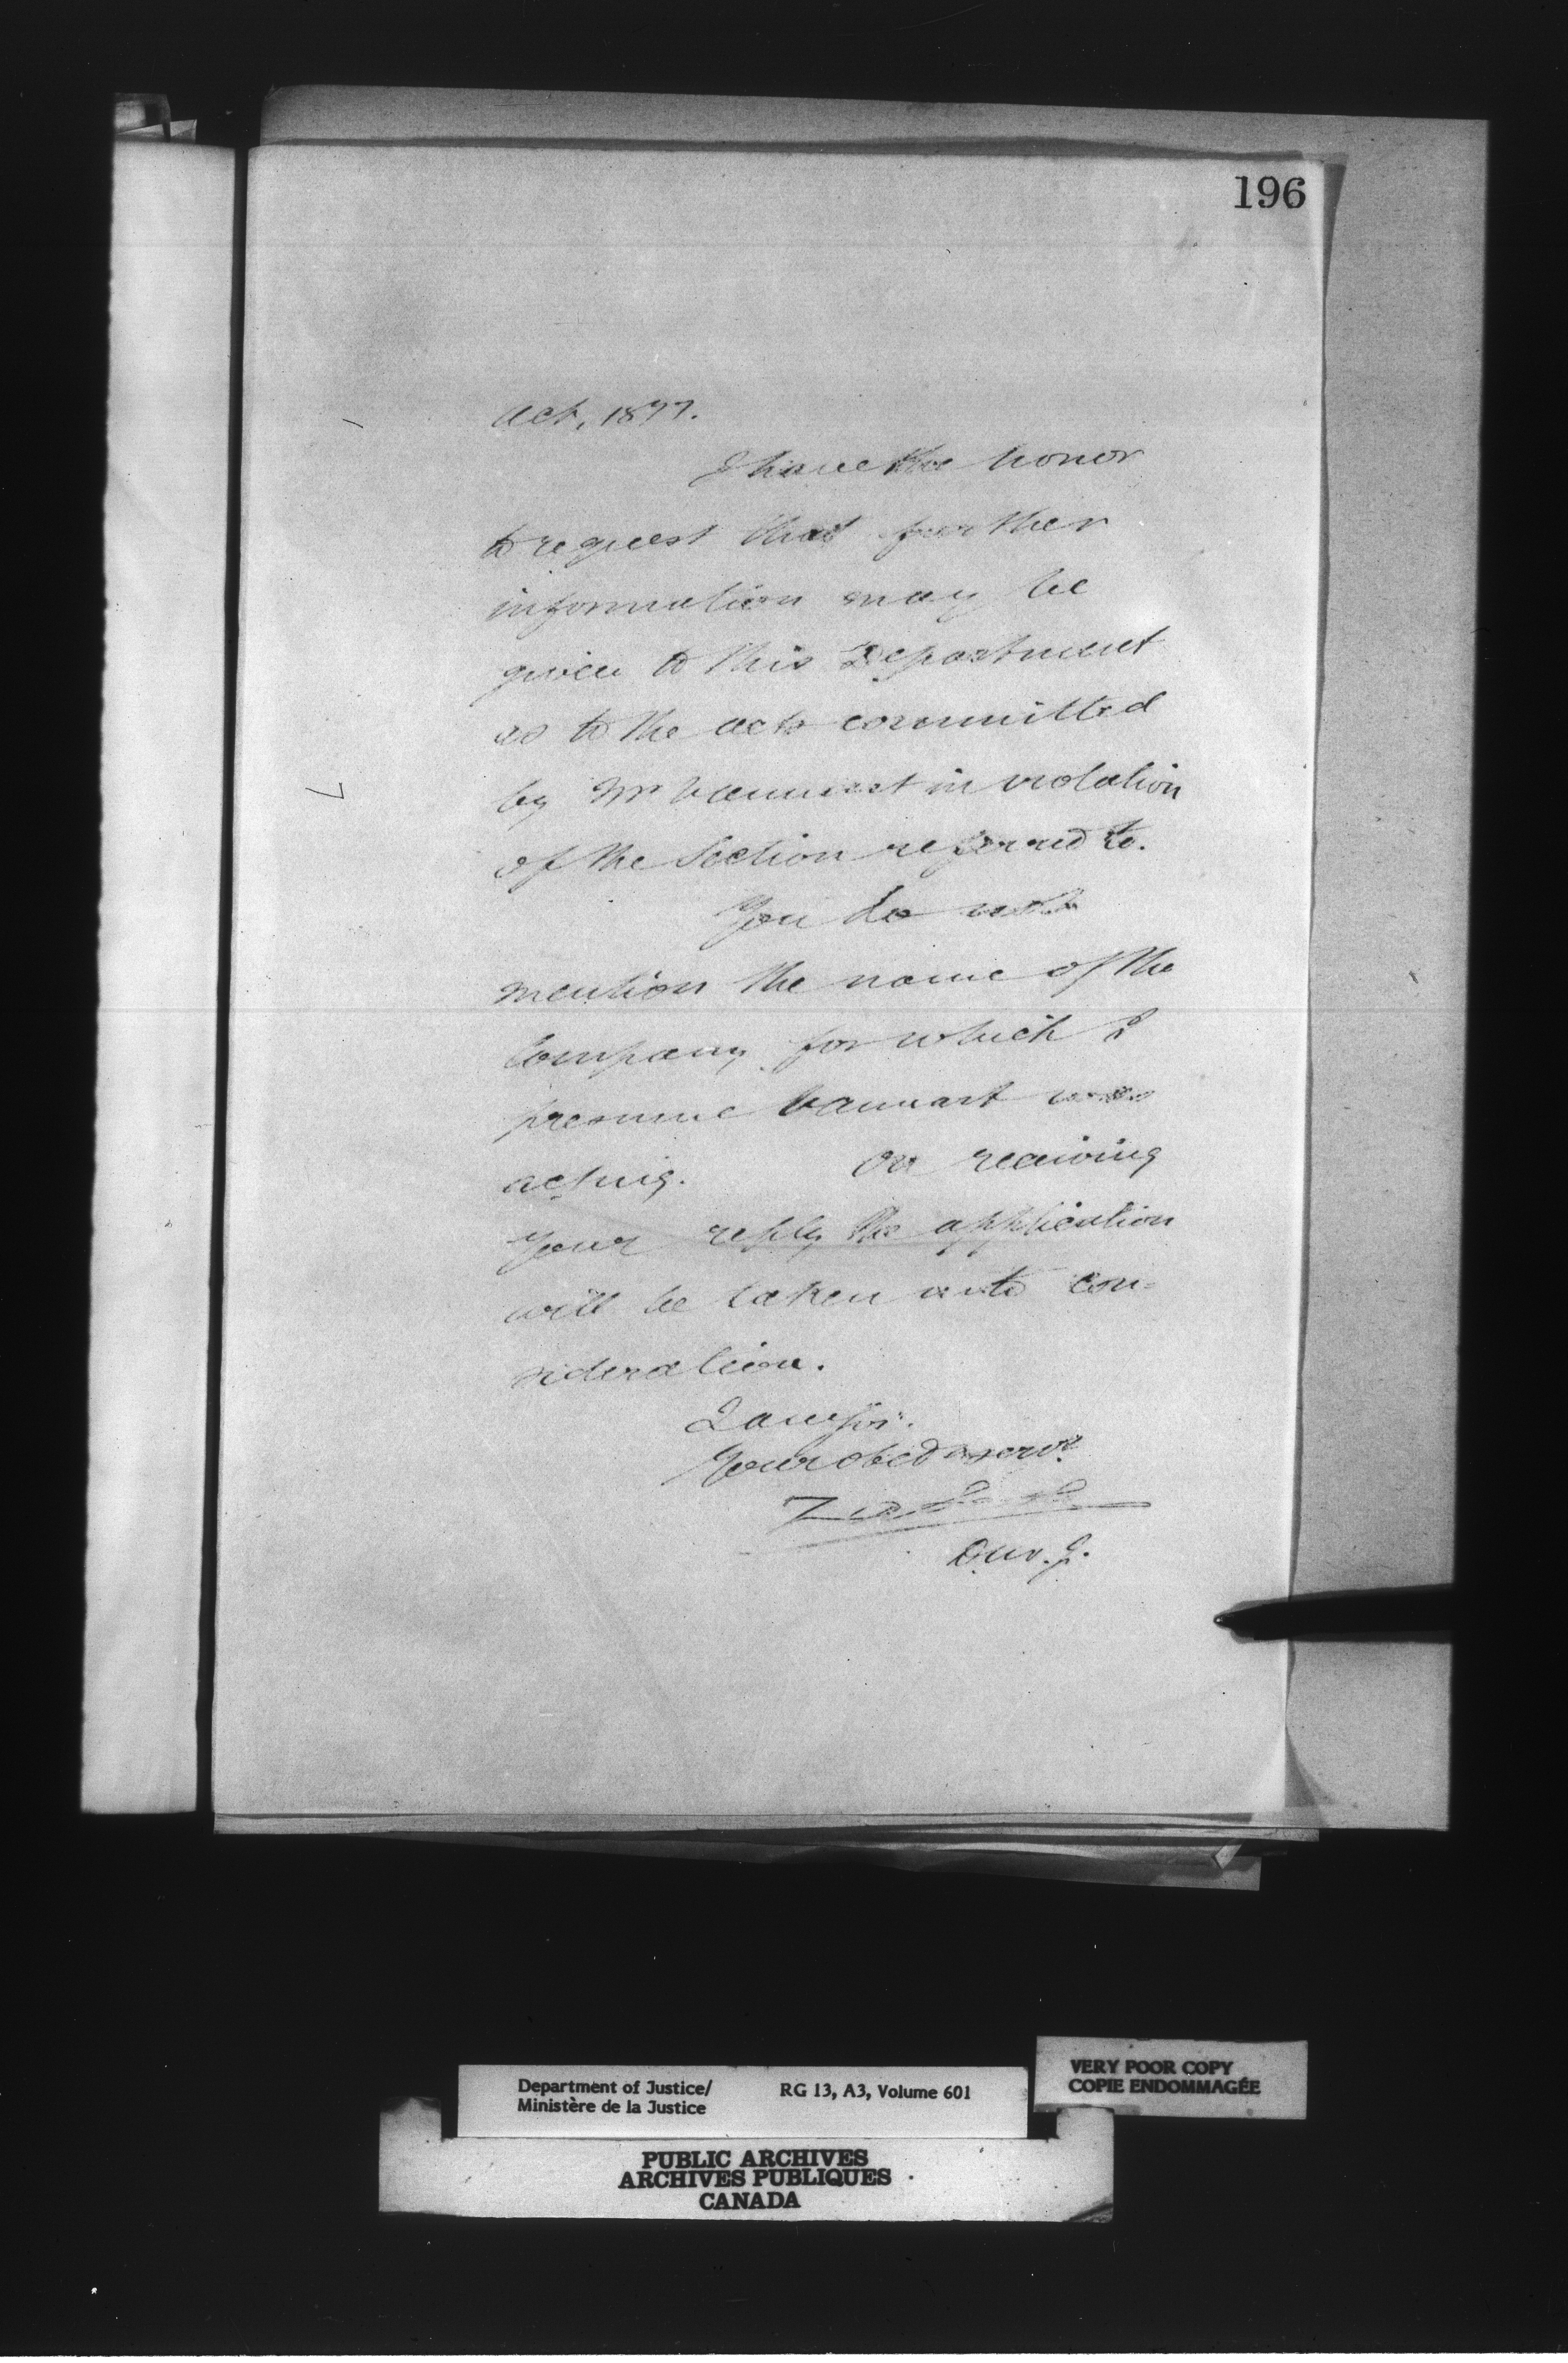 196
Act, 1877.
I have the honor
to request that further
information may be
given to this Department
as to the acts committed
by Mr Vannart in violation
of the Section referred to.
You do not
mention the name of the
Company for which I
presume Vannart was
acting. On receiving
your reply the application
will be taken into con-
sideration.
I am Sir.
Your obed serv.t
D.M.J.
Department of Justice/
Ministère de la Justice
RG 13, A3, Volume 601
VERY POOR COPY
COPIE ENDOMMAGÉE
PUBLIC ARCHIVES
ARCHIVES PUBLIQUES
CANADA